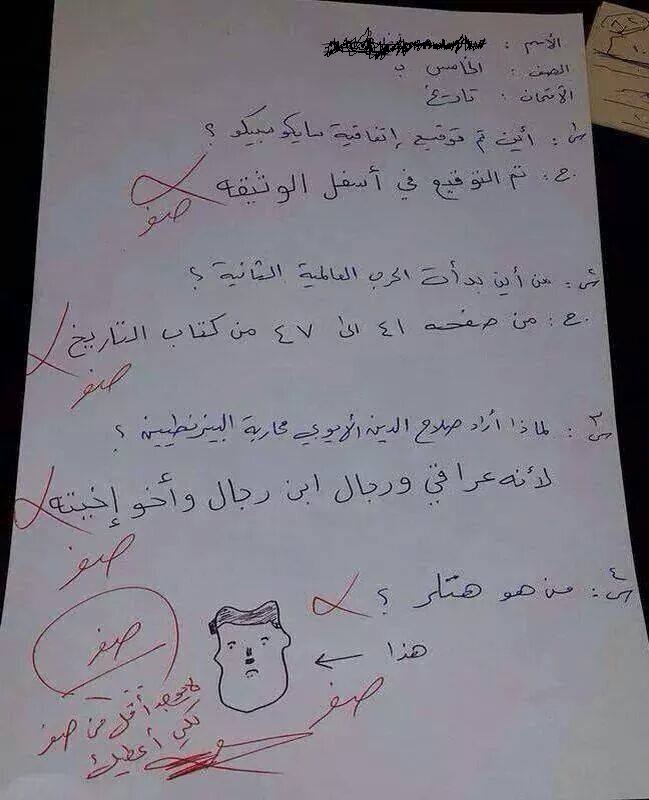 الأسم :
الصف : الخامس ب
الأمتحان : تاريخ
س١ : أين تم توقيع إتفاقية سايكوسبيكو ؟
ج : تم التوقيع في أسفل الوثيقه
صفر
س٢ : من أين بدأت الحرب العالمية الثانية ؟
ج : من صفحه ٤١ الى ٤٧ من كتاب التاريخ
صفر
س٣ : لماذا أراد صلاح الدين الأيوبي محاربة البيزنطيين ؟
لأنه عراقي ورجال ابن رجال وأخو إخيته
صفر
س٤ : من هو هتلر ؟
هذا
صفر
صفر
لا يوجد أقل من صفر
لكي أعطيك